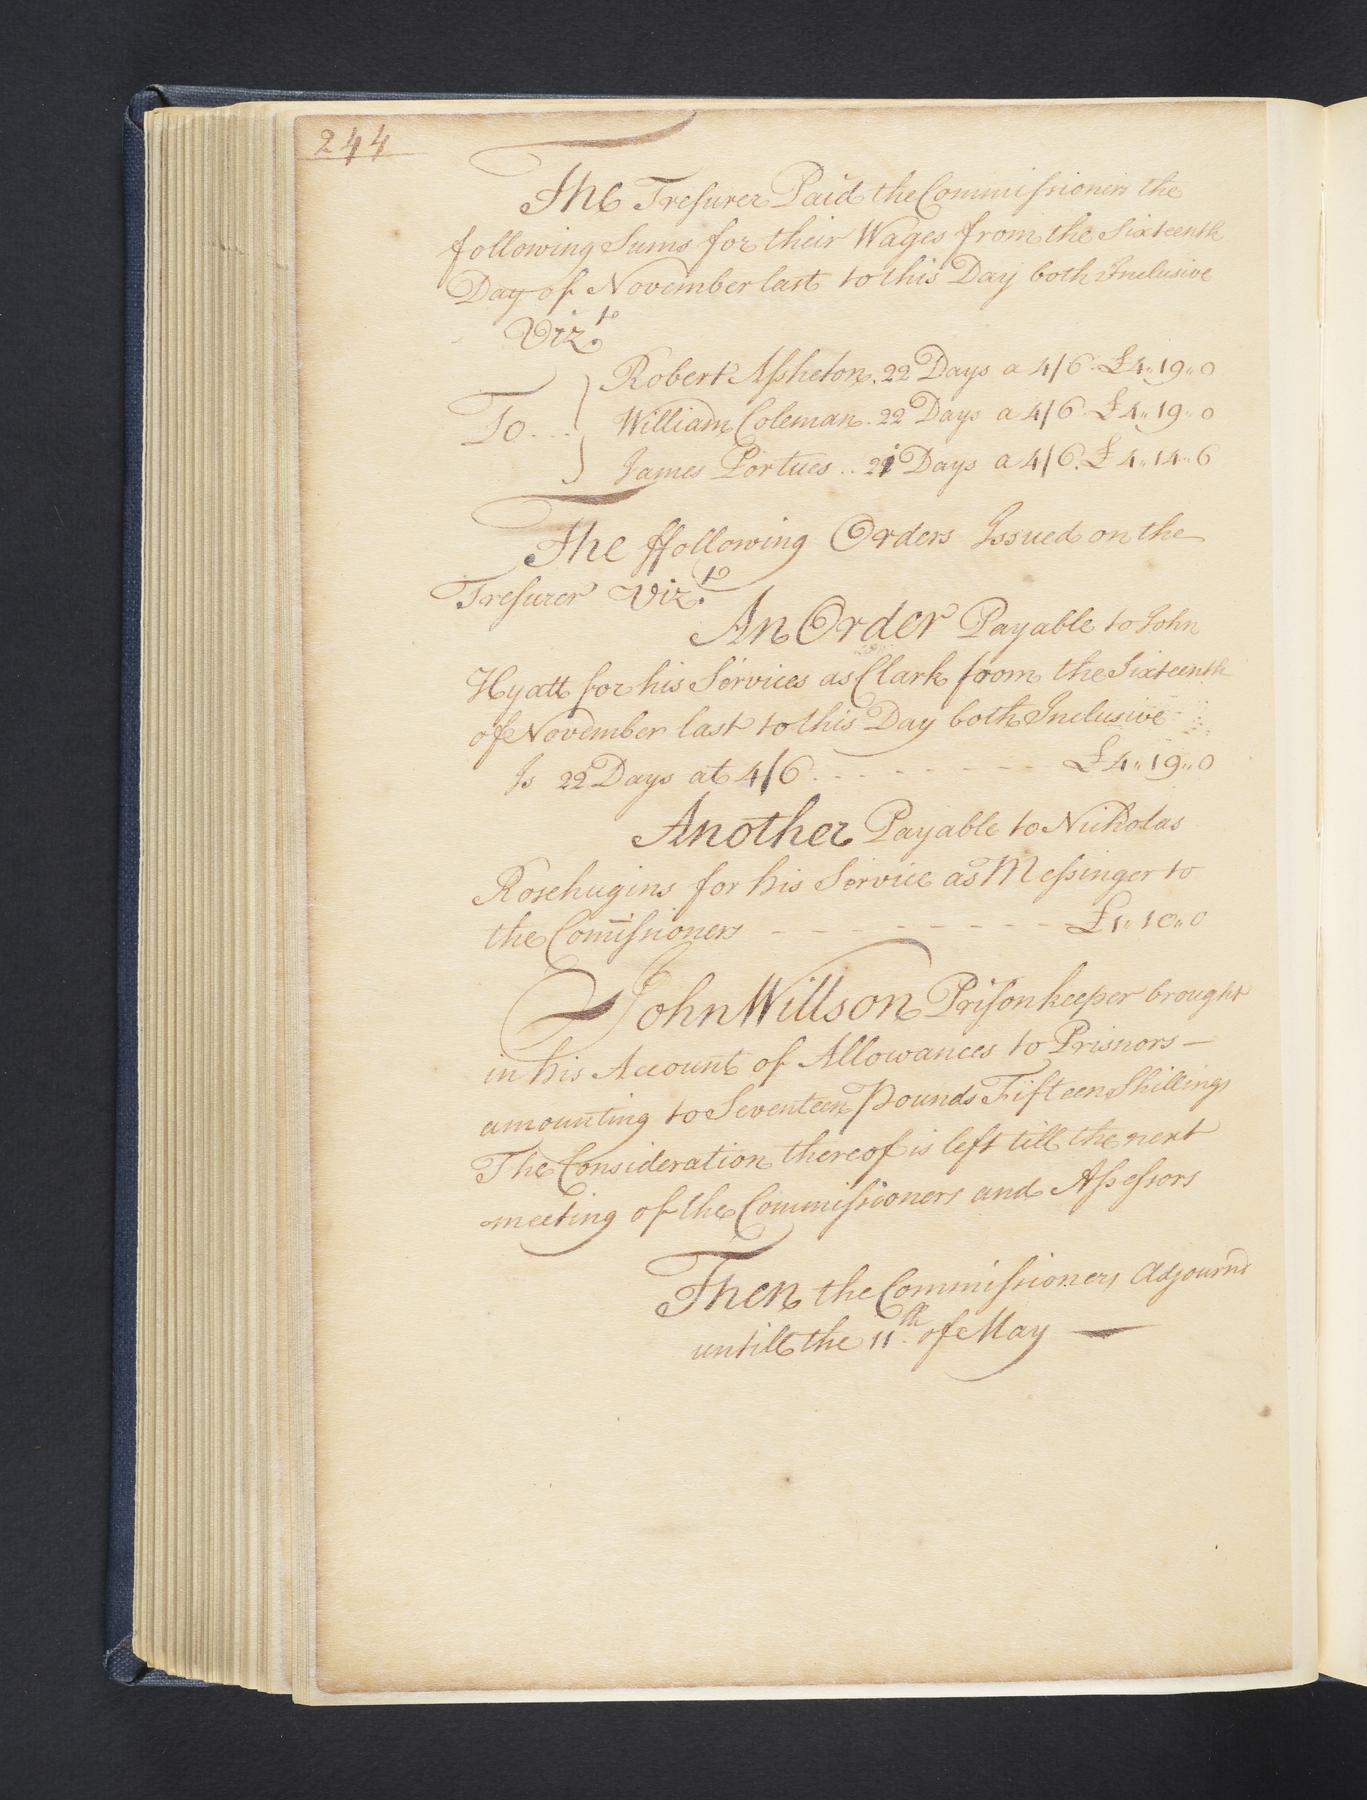 244
The Tresurer Paid the Commissioners the
following Sums for their Wages from the Sixteenth
Day of November last to this Day both Inclusive
Viz.to
Robert Assheton. 22 Days a 4/6. £4,,19,,0
To... William Coleman. 22 Days a 4/6. £4,,19,,0
James Portues .. 21 Days a 4/6. £4,,14,,6
The ffollowing Orders Issued on the
Tresurer Viz.to
An Order Payable to John
Hyatt for his Services as Clark from the Sixteenth
of November last to this Day both Inclusive
Is 22 Days at 4/6 - - - - - - - £4,,19,,0
Another Payable to Nicholas
Rosehugins for his Service as Messinger to
the Comissioners - - - - - - - £1,,10,,0
John Willson Prison keeper brought
in his Account of Allowances to Prisnors —
amounting to Seventeen Pounds Fifteen Shillings
The Consideration thereof is left till the next
meeting of the Commissioners and Assessors
Then the Commissioners Adjournd
untill the 11.th of May —